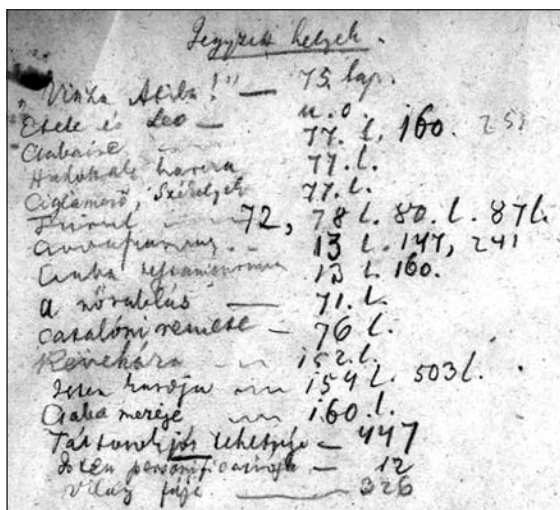 Jegyzett helyek.
"Vissza Atilla!" — 75. lap.
Etele és Leo — u. o.
Csabaire — 77. l. 160. 251
Hadak harcza 77. l.
Csiglamező, Székelyek 77. l.
Turul — 72, 78 l. 80. l. 87 l.
13 l. 147, 241
Csaba 13 l. 160.
A nőrablás — 71. l.
catalóni remete — 76 l.
Kevekára — 152. l.
Isten kardja — 154 l. 503 l.
Csaba mezeje — 160. l.
Tátosok jós tehetsége — 447
Isten personificatiója — 12
Világ fája — 326